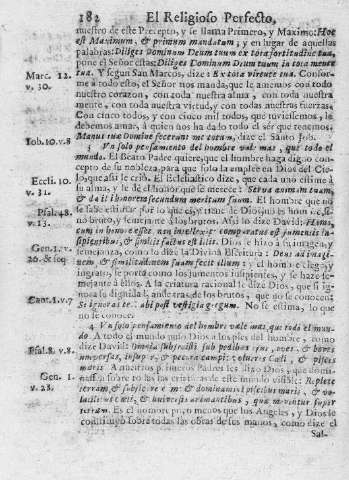 182 El Religioso Perfecto,
nuestro de este Precepto, y se llama Primero, y Maximo: Hoc
est Maximum, & primum mandatum; y en lugar de aquellas
palabras: Diliges Dominum Deum tuum ex tota fortitudine tua,
pone el Señor estas: Diliges Dominum Deum tuum in tota mente
tua. Y segun San Marcos, dize: Ex tota virtute tua. Confor-
me à todo esto, el Señor nos manda, que le amemos con todo
nuestro corazon, con toda nuestra alma, con toda nuestra
mente, con toda nuestra virtud, y con todas nuestras fuerzas.
Con cinco todos, y con cinco mil todos, que tuviessemos, le
debemos amar, à quien nos ha dado todo el ser que tenemos.
Manus tuæ Domine fecerunt me totum, dize el Santo Job.
3 Un solo pensamiento del hombre vale mas, que todo el
mundo. El Beato Padre quiere, que el hombre haga digno concep-
to de su nobleza, para que solo la emplee en Dios del Cie-
lo, que assi le criò. El Eclesiastico dize, que cada uno estime à
su alma, y le dè el honor que se merece: Serva animam tuam,
& da illi honorem secundum meritum suum. El hombre que no
se sabe estimar por lo que es, y
semejante à los brutos. Assi lo dize David: Homo,
cum in honore esset non intellexit: comparatus est jumentis in-
sipientibus, & similis factus est illis. Dios le hizo à su imagen, y
semejanza, como lo dize la Divina Escritura: Deus ad imagi-
nem, & similitudinem suam fecit illum: y el hombre ciego, y
ingrato, se porta como los jumentos insipientes, y se haze se-
mejante à ellos. A la criatura racional le dize Dios, que si ig-
nora su nobleza, ande tras de los brutos, que no se conocen:
Si ignoras te: abi post vestigia gregum. No se estima, lo que
no se conoce.
4 Un solo pensamiento del hombre vale mas, que todo el mun-
do. A todo el mundo puso Dios à los pies del hombre, como
dize David: Omnia subjecisti sub pedibus ejus, oves, & boves
universas, insuper, & pecora campi: volucres Cœli, & pisces
maris. A nuestros primeros Padres les dixo Dios, que domi-
nassen sobre todas las criaturas de este mundo visible: Replete
terram, & subjicite eam: & dominamini piscibus maris, & vo-
latilibus cœli, & universis animantibus, quæ moventur super
terram. Es el hombre poco menos que los Angeles, y Dios le
constituyò sobre todas las obras de sus manos, como dize el
Sal-
Marc. 12.
v. 30.
Iob. 10. v. 8
Eccli. 10.
v. 31.
Psal. 48.
v. 13.
Gen. 1. v.
26. & seq
Cant. 1. v. 7
Psal. 8. v. 8.
Gen. 1.
v. 28.